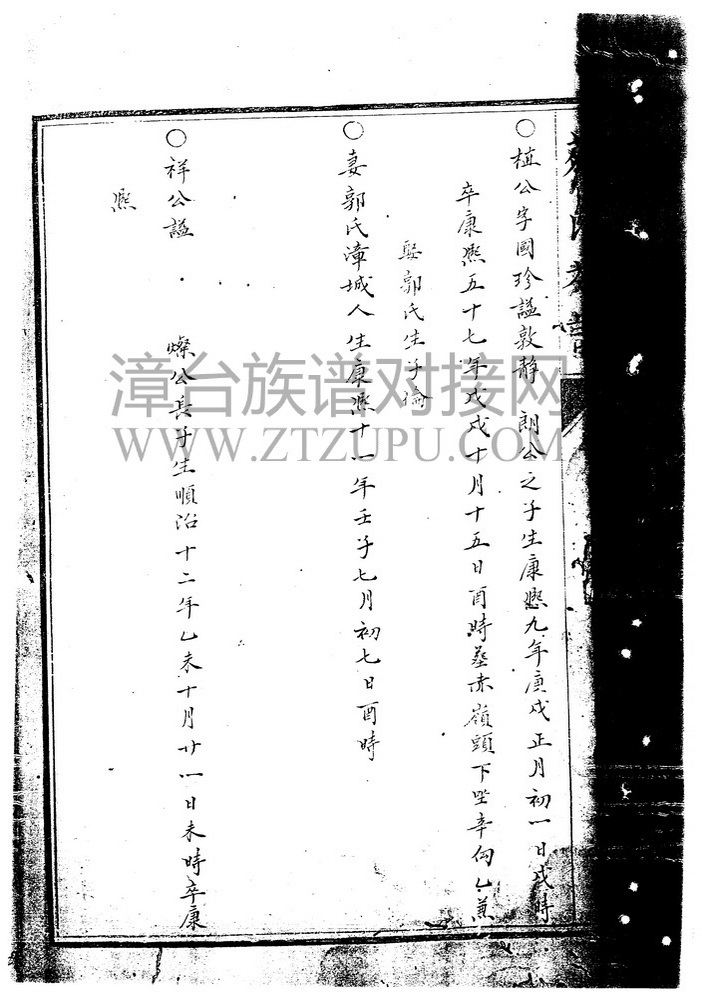 ○植公字國珍諡敦静 朗公之子生康熙九年庚戌正月初一日戌時
卒康熙五十七年戊戌十月十五日酉時葬赤嶺頭下坐辛向乙兼
娶郭氏生子倫
○妻郭氏漳城人生康熙十一年壬子七月初七日酉時
○祥公諡 燦公長子生順治十二年乙未十月廿一日未時卒康
熙
漳台族谱对接网
WWW.ZTZUPU.COM